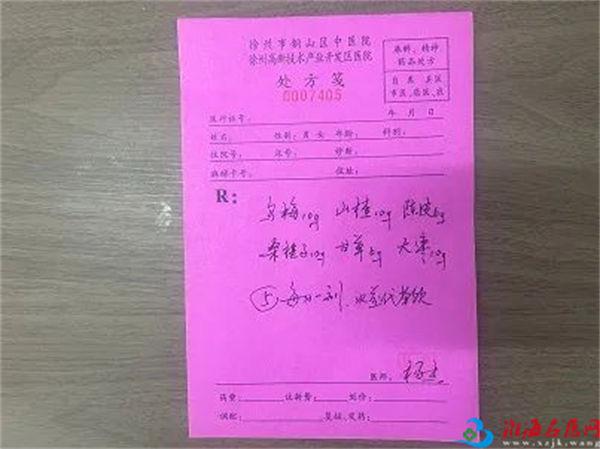 徐州市铜山区中医院
徐州高新技术产业开发区医院
处方笺
0007405
麻醉、精神
药品处方
自 费 其它
年 月 日
姓名: 性别:男 女 年龄: 科别:
住院号: 床号: 诊断:
住址:
R:
乌梅10g 山楂10g 陈皮6g
桑椹子10g 甘草6g 大枣10g
⑤ 每日一剂、水煎代茶饮
医师:
药费: 注射费: 划价:
调配: 复核、发药:
淮海名医网
www.xzjk.wang